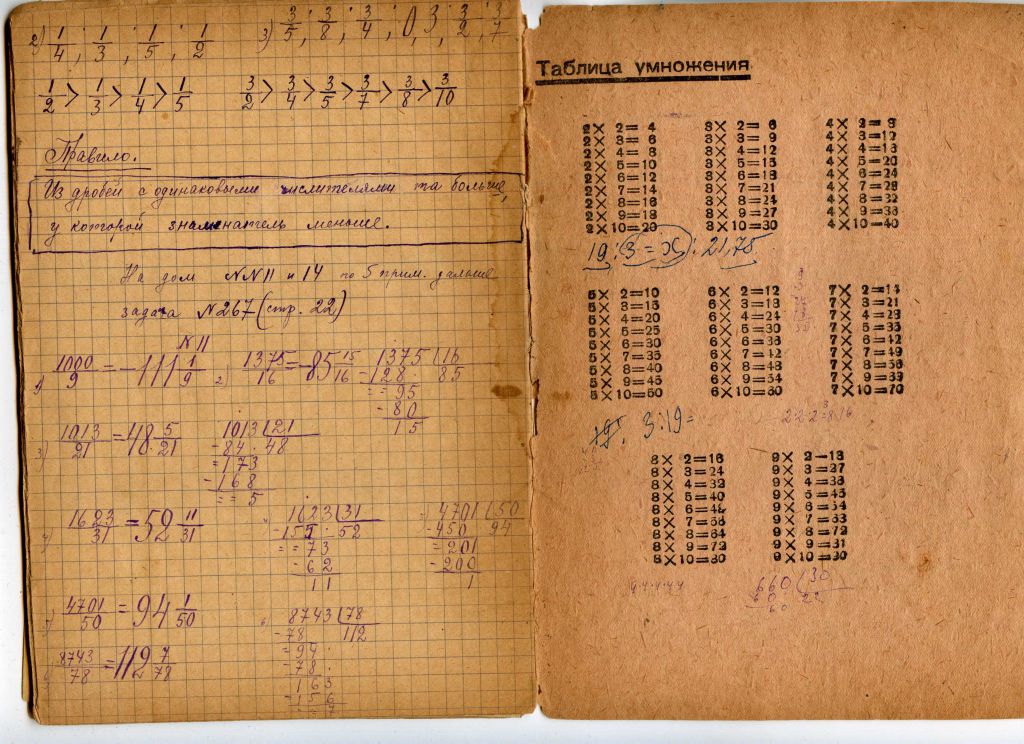 2) 1/4 ; 1/3 ; 1/5 ; 1/2 3) 3/5 ; 3/8 ; 3/4 ; 0,3 ; 3/2 ; 3/7
1/2 > 1/3 > 1/4 > 1/5 3/2 > 3/4 > 3/5 > 3/7 > 3/8 > 3/10
Правило.
Из дробей с одинаковыми числителями та больше,
у которой знаменатель меньше.
На дом №№11 и 14 по 5 прим. дальше
задача №267 (стр. 22)
№11
1) 1000/9 = 111 1/9 2) 1375/16 = 85 15/16 1375 16
-128 85
= = 95
- 80
15
3) 1013/21 = 48 5/21 1013 21
-84 48
= 173
-168
= = 5
4) 1623/31 = 52 11/31 1623 31
-155 52
= = 73
- 62
11
4701 50
-450 94
= 201
- 200
1
5) 4701/50 = 94 1/50
8743 78
-78 112
= 94
- 78
163
- 156
= = 7
8743/78 = 112 7/78
Таблица умножения
2× 2= 4 3× 2= 6 4× 2= 8
2× 3= 6 3× 3= 9 4× 3=12
2× 4= 8 3× 4=12 4× 4=16
2× 5=10 3× 5=15 4× 5=20
2× 6=12 3× 6=18 4× 6=24
2× 7=14 3× 7=21 4× 7=28
2× 8=16 3× 8=24 4× 8=32
2× 9=18 3× 9=27 4× 9=36
2×10=20 3×10=30 4×10=40
19:(3=x):21,75
5× 2=10 6× 2=12 7× 2=14
5× 3=15 6× 3=18 7× 3=21
5× 4=20 6× 4=24 7× 4=28
5× 5=25 6× 5=30 7× 5=35
5× 6=30 6× 6=36 7× 6=42
5× 7=35 6× 7=42 7× 7=49
5× 8=40 6× 8=48 7× 8=56
5× 9=45 6× 9=54 7× 9=63
5×10=50 6×10=60 7×10=70
3:19=
8× 2=16 9× 2=18
8× 3=24 9× 3=27
8× 4=32 9× 4=36
8× 5=40 9× 5=45
8× 6=48 9× 6=54
8× 7=56 9× 7=63
8× 8=64 9× 8=72
8× 9=72 9× 9=81
8×10=80 9×10=90
660 30
60 22
60